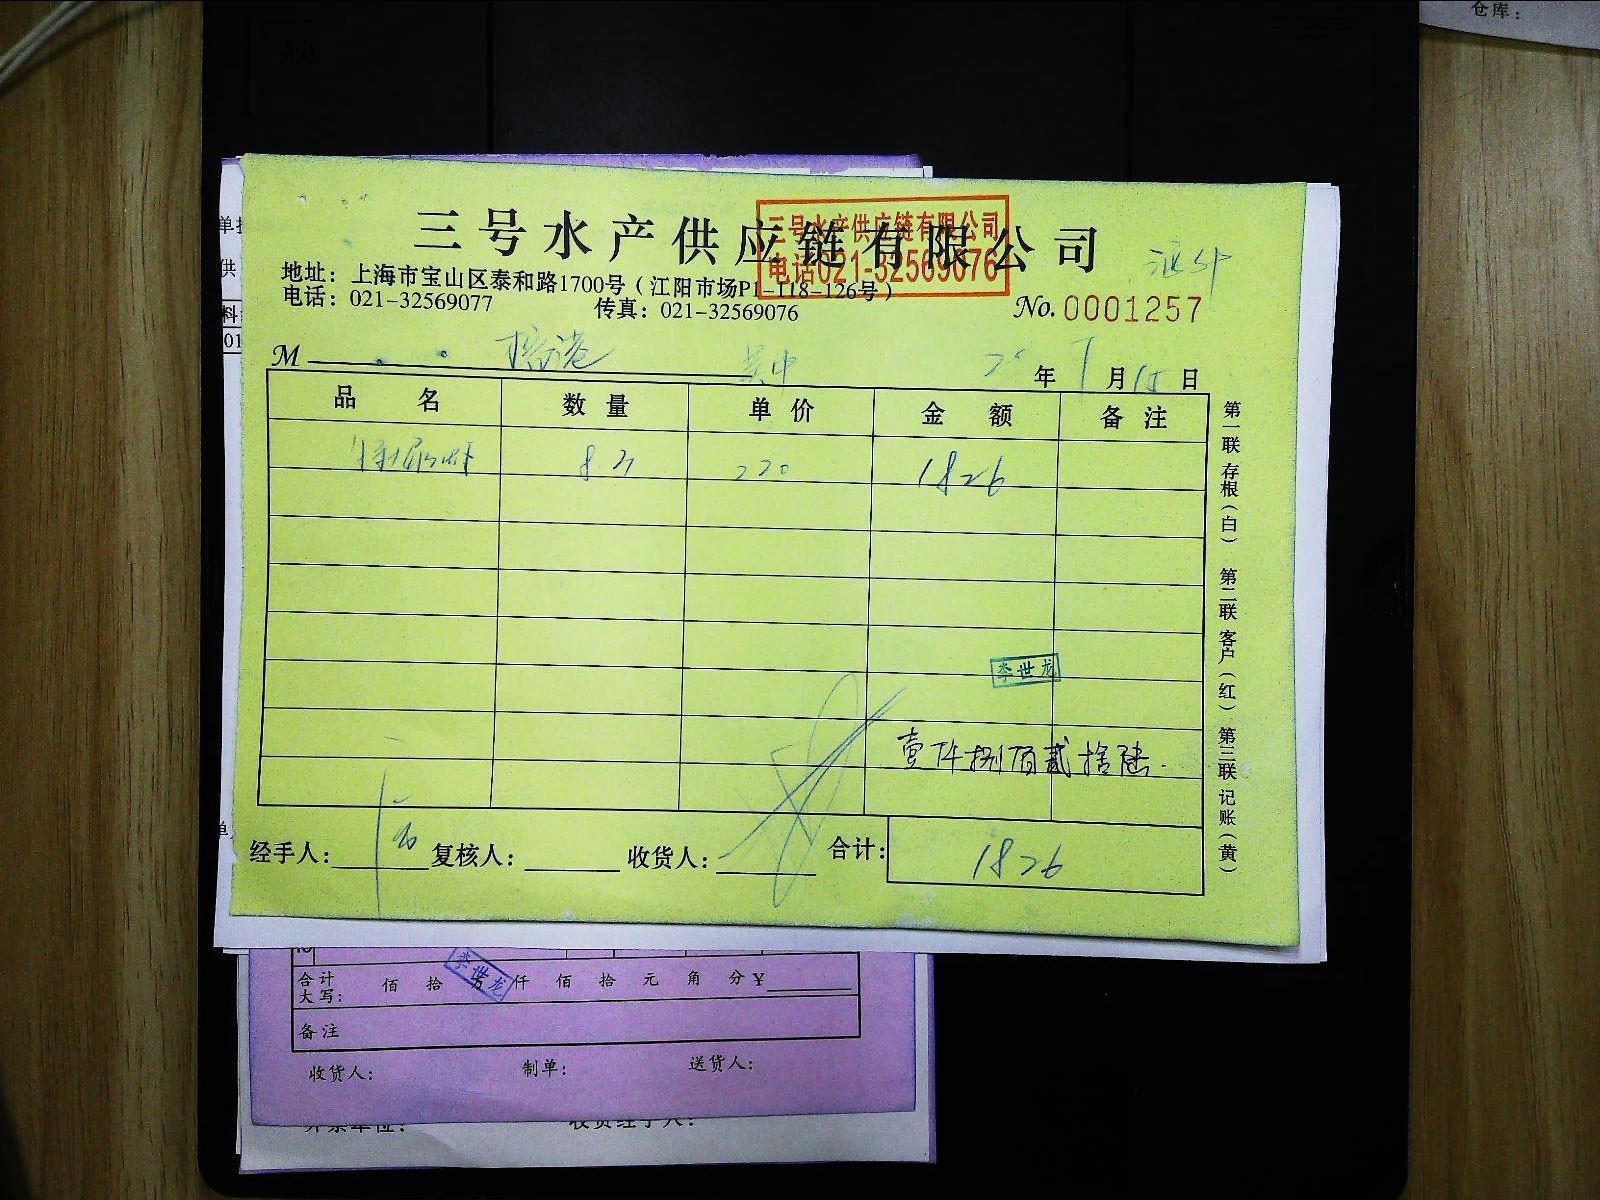 仓库：
三号水产供应链有限公司
三号水产供应链有限公司
电话021-32569076
地址：上海市宝山区泰和路1700号（江阳市场P1-118-126号）
电话：021-32569077 传真：021-32569076
No. 0001257
M 年 月 15 日
品名 数量 单价 金额 备注
220 1826
李世龙
壹仟捌佰贰拾陆
经手人： 复核人： 收货人： 合计： 1826
第一联 存根（白） 第二联 客户（红） 第三联 记账（黄）
供
料
01
合计
大写： 佰 拾 万 仟 佰 拾 元 角 分 ¥
李世龙
备注
收货人： 制单： 送货人：